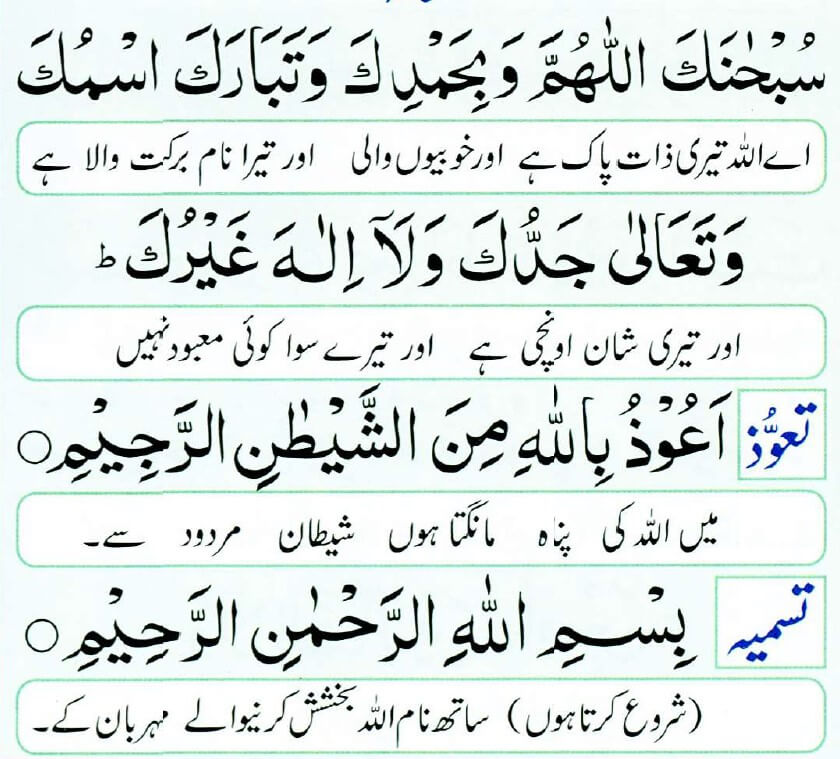 سُبْحٰنَكَ اللّٰهُمَّ وَبِحَمْدِكَ وَتَبَارَكَ اسْمُكَ
اے اللہ تیری ذات پاک ہے اور خوبیوں والی اور تیرا نام برکت والا ہے
وَتَعَالٰى جَدُّكَ وَلَآ اِلٰهَ غَيْرُكَ ط
اور تیری شان اونچی ہے اور تیرے سوا کوئی معبود نہیں
تعوُّذ اَعُوْذُ بِاللّٰهِ مِنَ الشَّيْطٰنِ الرَّجِيْمِ ○
میں اللہ کی پناہ مانگتا ہوں شیطان مردود سے۔
تسمیہ بِسْمِ اللّٰهِ الرَّحْمٰنِ الرَّحِيْمِ ○
(شروع کرتا ہوں) ساتھ نام اللہ بخشش کرنیوالے مہربان کے۔